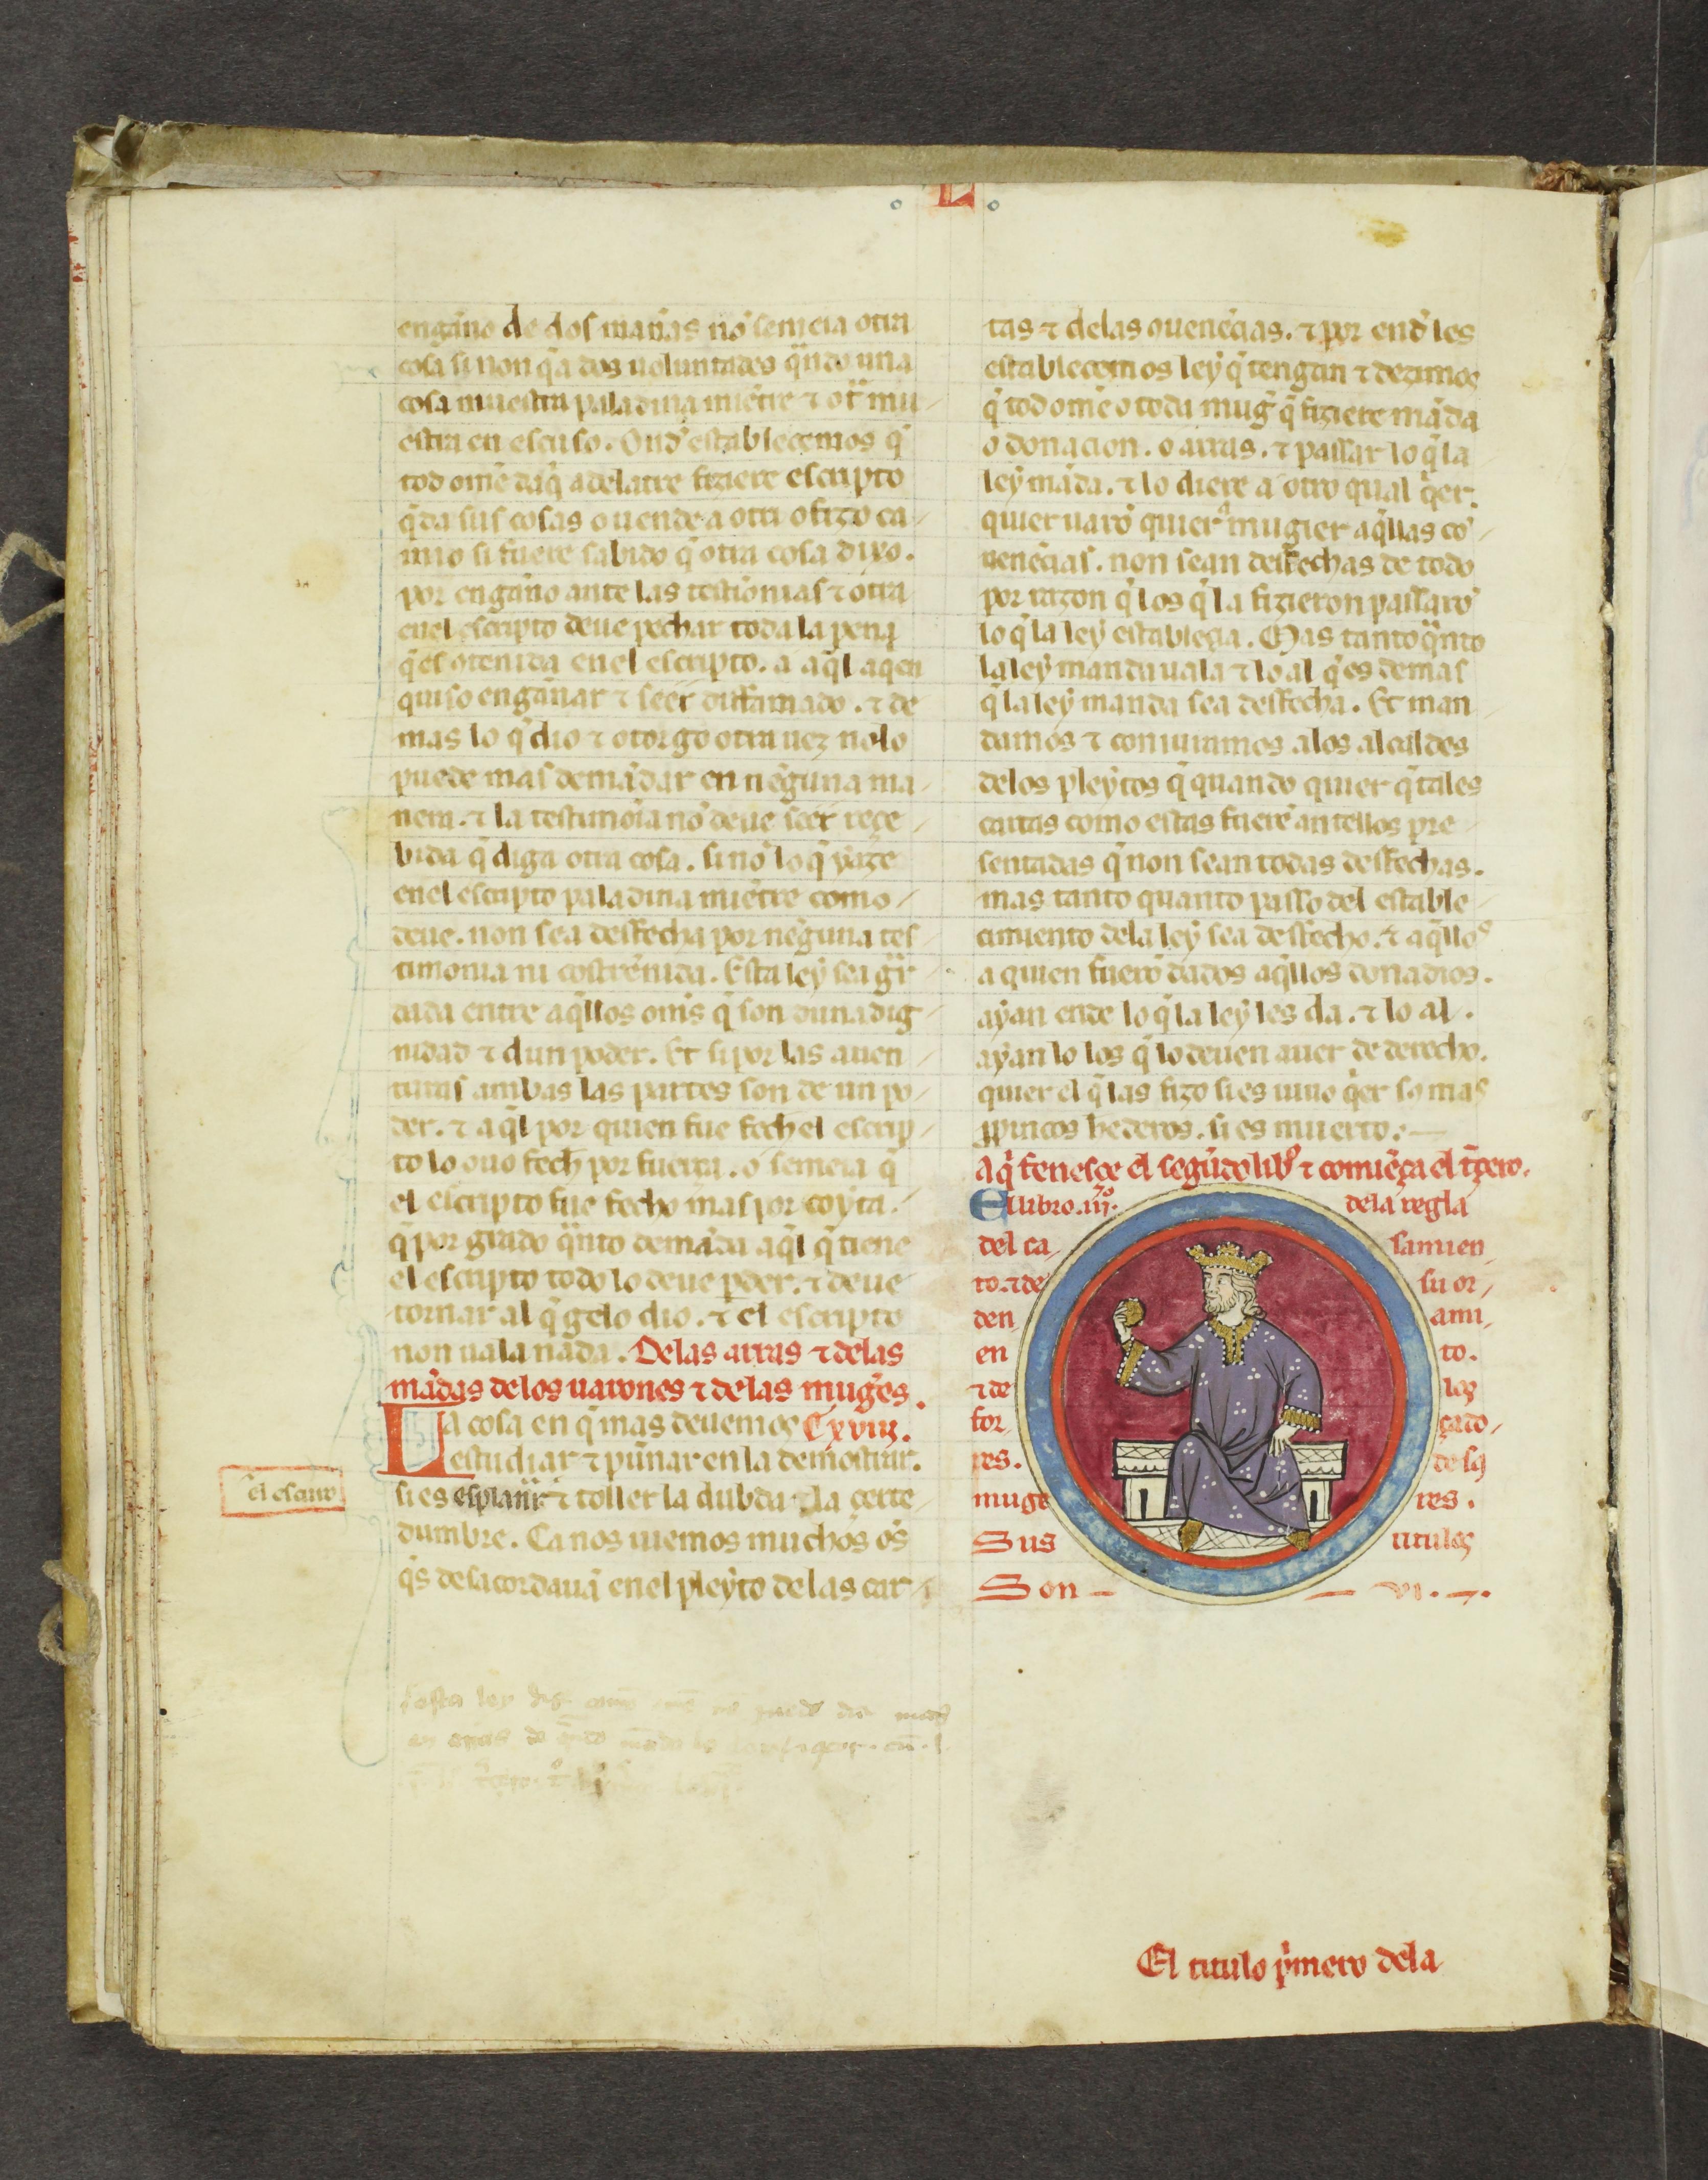 L
engan̄o de dos man̄as nō semeia otra
cosa si non q̄ a dos uoluntades q̄ndo una
cosa muestra paladina miētre ⁊ ot̄ mu-
estra en escuso. Ond̄ establecemos q̄
tod omē daq̄ adelātre fiziere escripto
q̄ da sus cosas o uende a otri o fizo ca-
mio si fuere sabido q̄ otra cosa dixo.
por engan̄o ante las testionias ⁊ otra
en el escripto deue pechar toda la pena
q̄ es otenida en el escripto. a aq̄l aqen
quiso engan̄ar ⁊ seer diffamado. ⁊ de
mas lo q̄ dio ⁊ otorgo otra uez nōlo
puede mas demādar en nēguna ma-
nera. ⁊ la testimoīa nō deue seer reçe-
bida q̄ diga otra cosa. si nō lo q̄ yaze
en el escripto paladina miētre como-
deue. non sea desfecha por nēguna tes-
timonia ni costrēnida. Esta ley sea gr̄-
dada entre aq̄llos oms̄ q̄ son duna dig-
nidad ⁊ dun poder. Et si por las auen-
turas ambas las partes son de un po-
der. ⁊ aq̄l por quien fue fech el escrip-
to lo ouo fech por fuerça. o semeia q̄
el escripto fue fecho mas por coyta.
q̄ por grado q̄nto demāda aq̄l q̄ tiene
el escripto todo lo deue pder. ⁊ deue
tornar al q̄ gelo dio. ⁊ el escripto
non uala nada. Delas arras ⁊ delas
mādas delos uarones ⁊ delas muges̄.
La cosa en q̄ mas deuemos Cxviij.
estudiar ⁊ pun̄ar en la demostrar.
el escuro
si es esplanar ⁊ toller la dubda ⁊ la çerte-
dumbre. Ca nos uiemos muchos os̄
q̄s desacordauā en el pleyto de las car-
tas ⁊ delas ouenēcias. ⁊ por end̄ les
establecemos ley q̄ tengan ⁊ dezimos
q̄ tod omē o toda muḡ q̄ fiziere māda
o donacion. o arras. ⁊ passar lo q̄ la
ley māda. ⁊ lo diere a otro qual q̄er.
quier uarō quier mugier aq̄llas cō-
uenēcias. non sean desfechas de todo
por razon q̄ los q̄ la fizieron passarō
lo q̄ la ley establecia. Mas tanto q̄nto
la ley manda uala ⁊ lo al q̄ es demas
q̄ la ley manda sea desfecha. Et man-
damos ⁊ coniuramos alos alcaldes
delos pleytos q̄ quando quier q̄ tales
cartas como estas fuerē antellos pre-
sentadas q̄ non sean todas desfechas.
mas tanto quanto passo del estable-
cimiento dela ley sea desfecho. ⁊ aq̄llos
a quien fuerō dados aq̄llos donadios.
ayan ende lo q̄ la ley les da. ⁊ lo al.
ayan lo los q̄ lo deuen auer de derecho.
quier el q̄ las fizo si es uiuo q̄er so mas
ppincos hederos. si es muerto.
Aq̄ fenesçe el segūdo lib̄ ⁊ comiēça el t̄cero.
El libro .iij.º dela regla
del ca- samien
to. ⁊ de su or-
den ami-
en to.
⁊ de los
for- çado-
res. de las
muge res.
Sus titulos
Son VI.
El titulo p̄mero dela